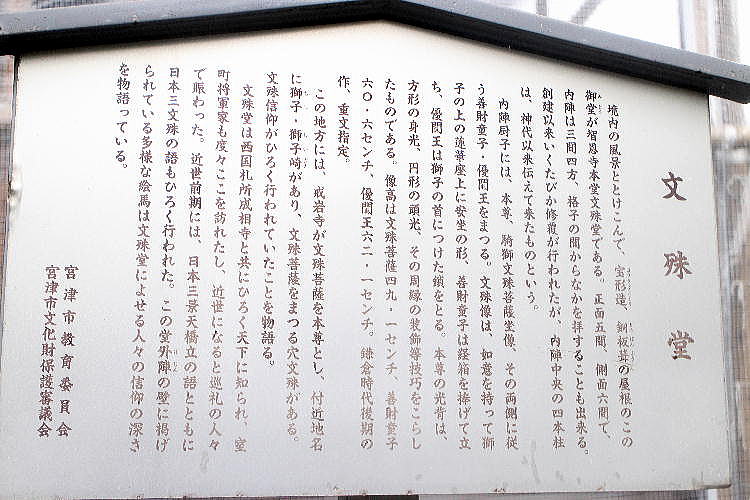 文殊堂
境内の風景ととけこんで、宝形造、銅板葺の屋根のこの
御堂が智恩寺本堂文殊堂である。正面五間、側面六間で、
内陣は三間四方、格子の間からなかを拝することも出来る。
創建以来いくたびか修覆が行われたが、内陣中央の四本柱
は、神代以来伝えて来たものという。
内陣厨子には、本尊、騎獅文殊菩薩坐像、その両側に従
う善財童子・優闐王をまつる。文殊像は、如意を持って獅
子の上の蓮華座上に安坐の形、善財童子は経箱を捧げて立
ち、優闐王は獅子の首につけた鎖をとる。本尊の光背は、
方形の身光、円形の頭光、その周縁の装飾等技巧をこらし
たものである。像高は文殊菩薩四九・一センチ、善財童子
六〇・六センチ、優闐王六二・一センチ。鎌倉時代後期の
作、重文指定。
この地方には、戒岩寺が文殊菩薩を本尊とし、付近地名
に獅子・獅子崎があり、文殊菩薩をまつる穴文殊がある。
文殊信仰がひろく行われていたことを物語る。
文殊堂は西国札所成相寺と共にひろく天下に知られ、室
町将軍家も度々ここを訪れたし、近世になると巡礼の人々
で賑わった。近世前期には、日本三景天橋立の語とともに
日本三文殊の語もひろく行われた。この堂外陣の壁に掲げ
られている多様な絵馬は文殊堂によせる人々の信仰の深さ
を物語っている。
宮津市教育委員会
宮津市文化財保護審議会